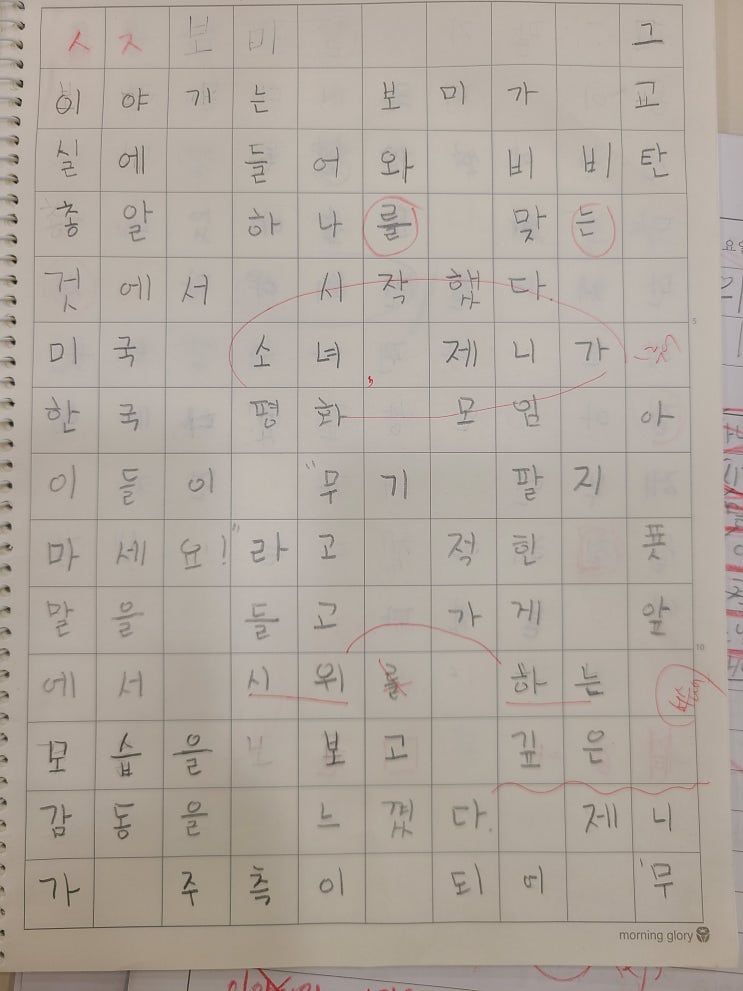 보미 그
이야기는 보미가 교
실에 들어와 비비탄
총알 하나를 맞는
것에서 시작했다.
5
미국 소녀, 제니가
한국 평화 모임 아
이들이 "무기 팔지
마세요!"라고 적힌 푯
말을 들고 가게 앞
10
에서 시위를 하는
모습을 보고 깊은
감동을 느꼈다. 제니
가 주축이 되어 '무
morning glory